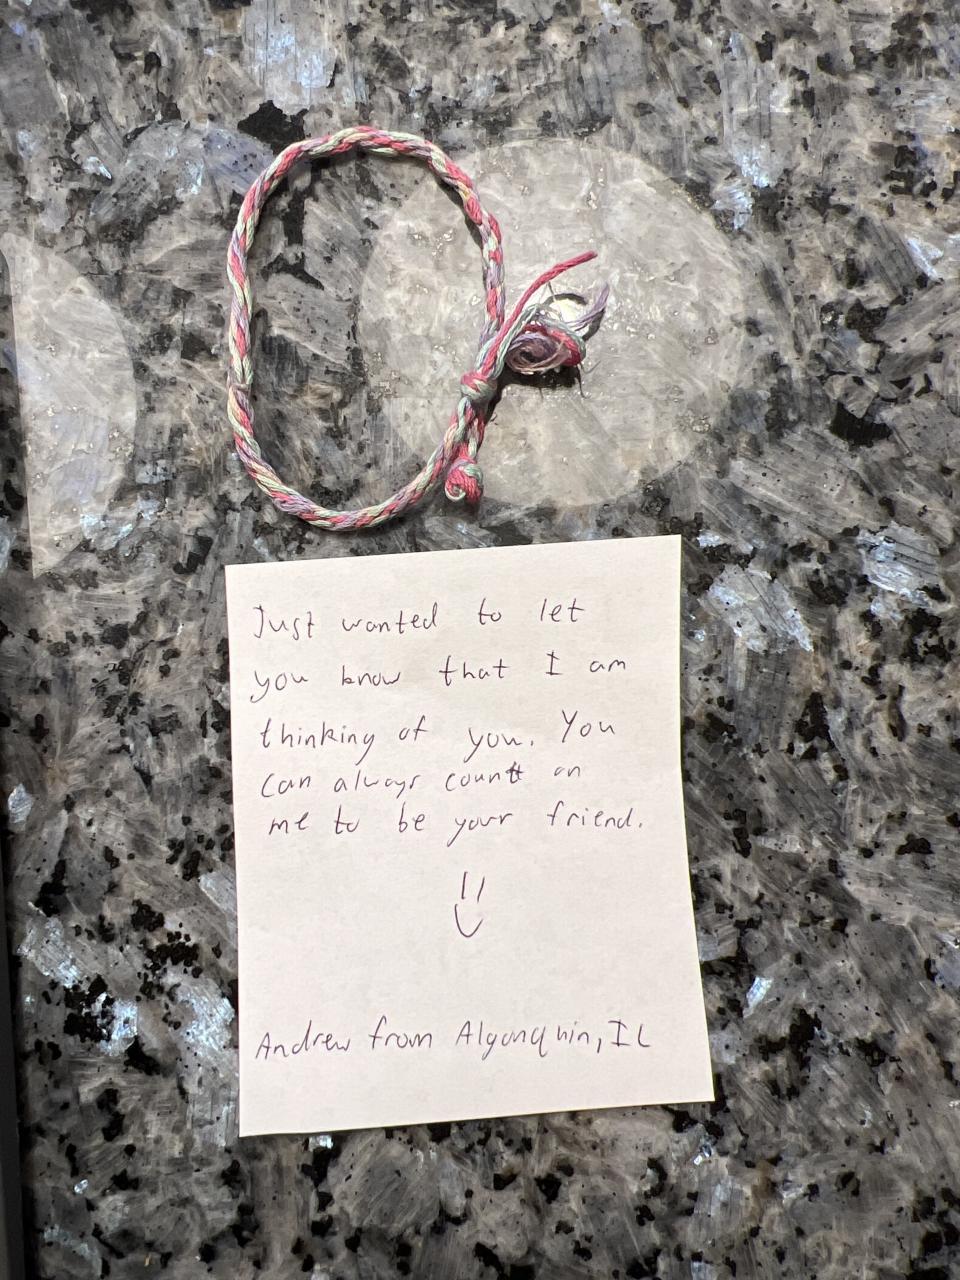 Just wanted to let
you know that I am
thinking of you. You
can always count on
me to be your friend.
Andrew from Algonquin, IL